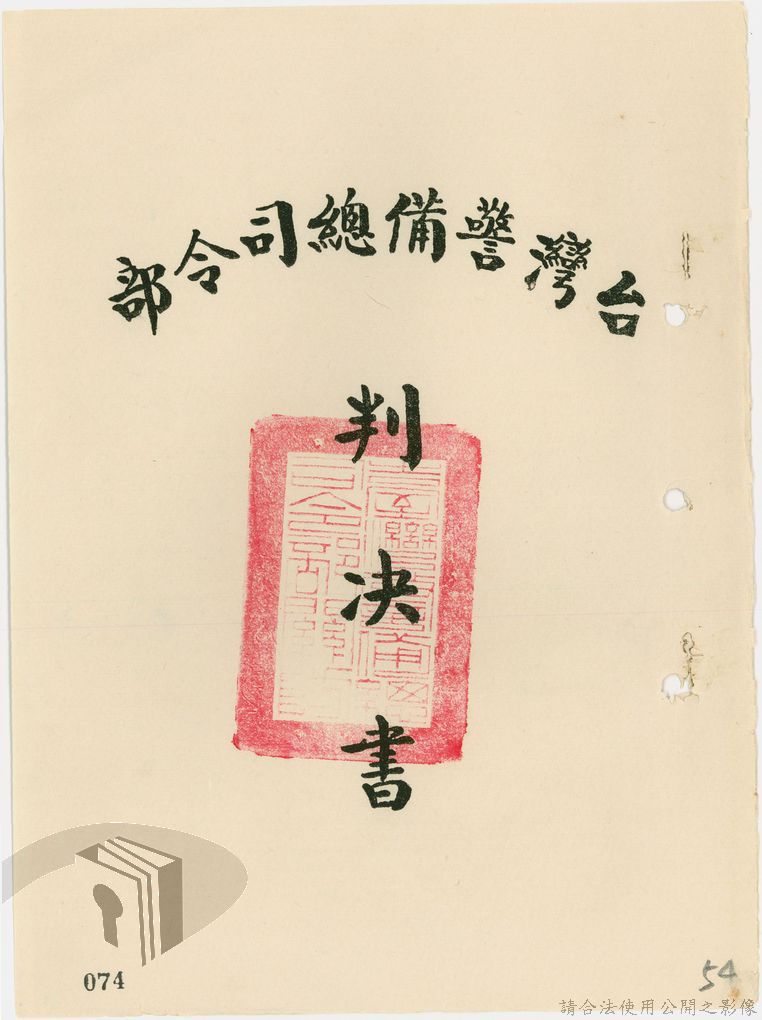 台灣警備總司令部
判決書
074
54
請合法使用公開之影像